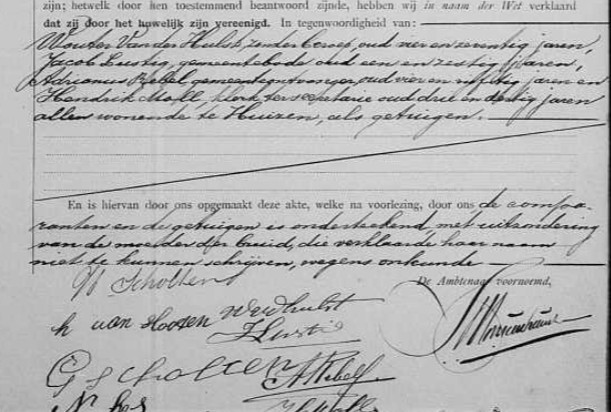 zijn; hetwelk door hen toestemmend beantwoord zijnde, hebben wij in naam der Wet verklaard
dat zij door het huwelijk zijn vereenigd. In tegenwoordigheid van:
Wouter Van der Hulst, zonder beroep, oud vier en zeventig jaren,
Jacob Lustig, gemeentebode oud een en zestig jaren,
Adrianus Rebel, gemeenteontvanger, oud vier en vijftig jaren en
Hendrik Moll, klerk ter secretarie oud drie en dertig jaren
allen wonende te Huizen, als getuigen.
En is hiervan door ons opgemaakt deze akte, welke na voorlezing, door ons, de compa-
ranten en de getuigen is onderteekend, met uitzondering
van de moeder der bruid, die verklaarde haar naam
niet te kunnen schrijven, wegens onkunde
De Ambtenaar voornoemd,
Scholten
van Hooven
WvdHulst
J Lustig
G Scholten
A Rebel